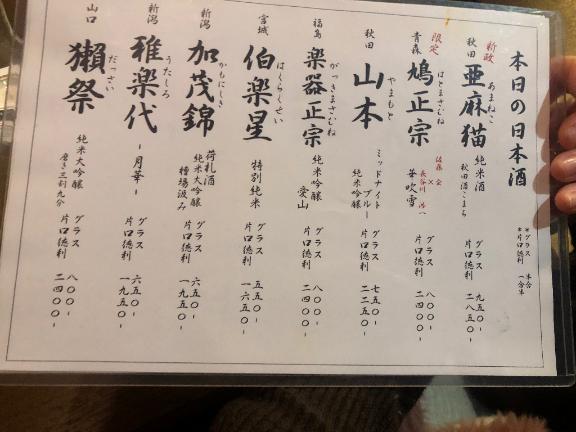 本日の日本酒
*グラス 半合
*片口徳利 一合半
新政
秋田 亜麻猫 あまねこ
純米酒
秋田酒こまち
グラス 九五〇-
片口徳利 二八五〇-
限定
青森 鳩正宗 はとまさむね
佐藤 企
×
長谷川 浩一
華吹雪
グラス 八〇〇-
片口徳利 二四〇〇-
秋田 山本 やまもと
ミッドナイトブルー
純米吟醸
グラス 七五〇-
片口徳利 二二五〇-
福島 楽器正宗 がっきまさむね
純米吟醸
愛山
グラス 八〇〇-
片口徳利 二四〇〇-
宮城 伯楽星 はくらくせい
特別純米
グラス 五五〇-
片口徳利 一六五〇-
新潟 加茂錦 かもにしき
荷札酒
純米大吟醸
槽場汲み
グラス 六五〇-
片口徳利 一九五〇-
新潟 雅楽代 うたしろ
-月華-
グラス 六五〇-
片口徳利 一九五〇-
山口 獺祭 だっさい
純米大吟醸
磨き三割九分
グラス 八〇〇-
片口徳利 二四〇〇-